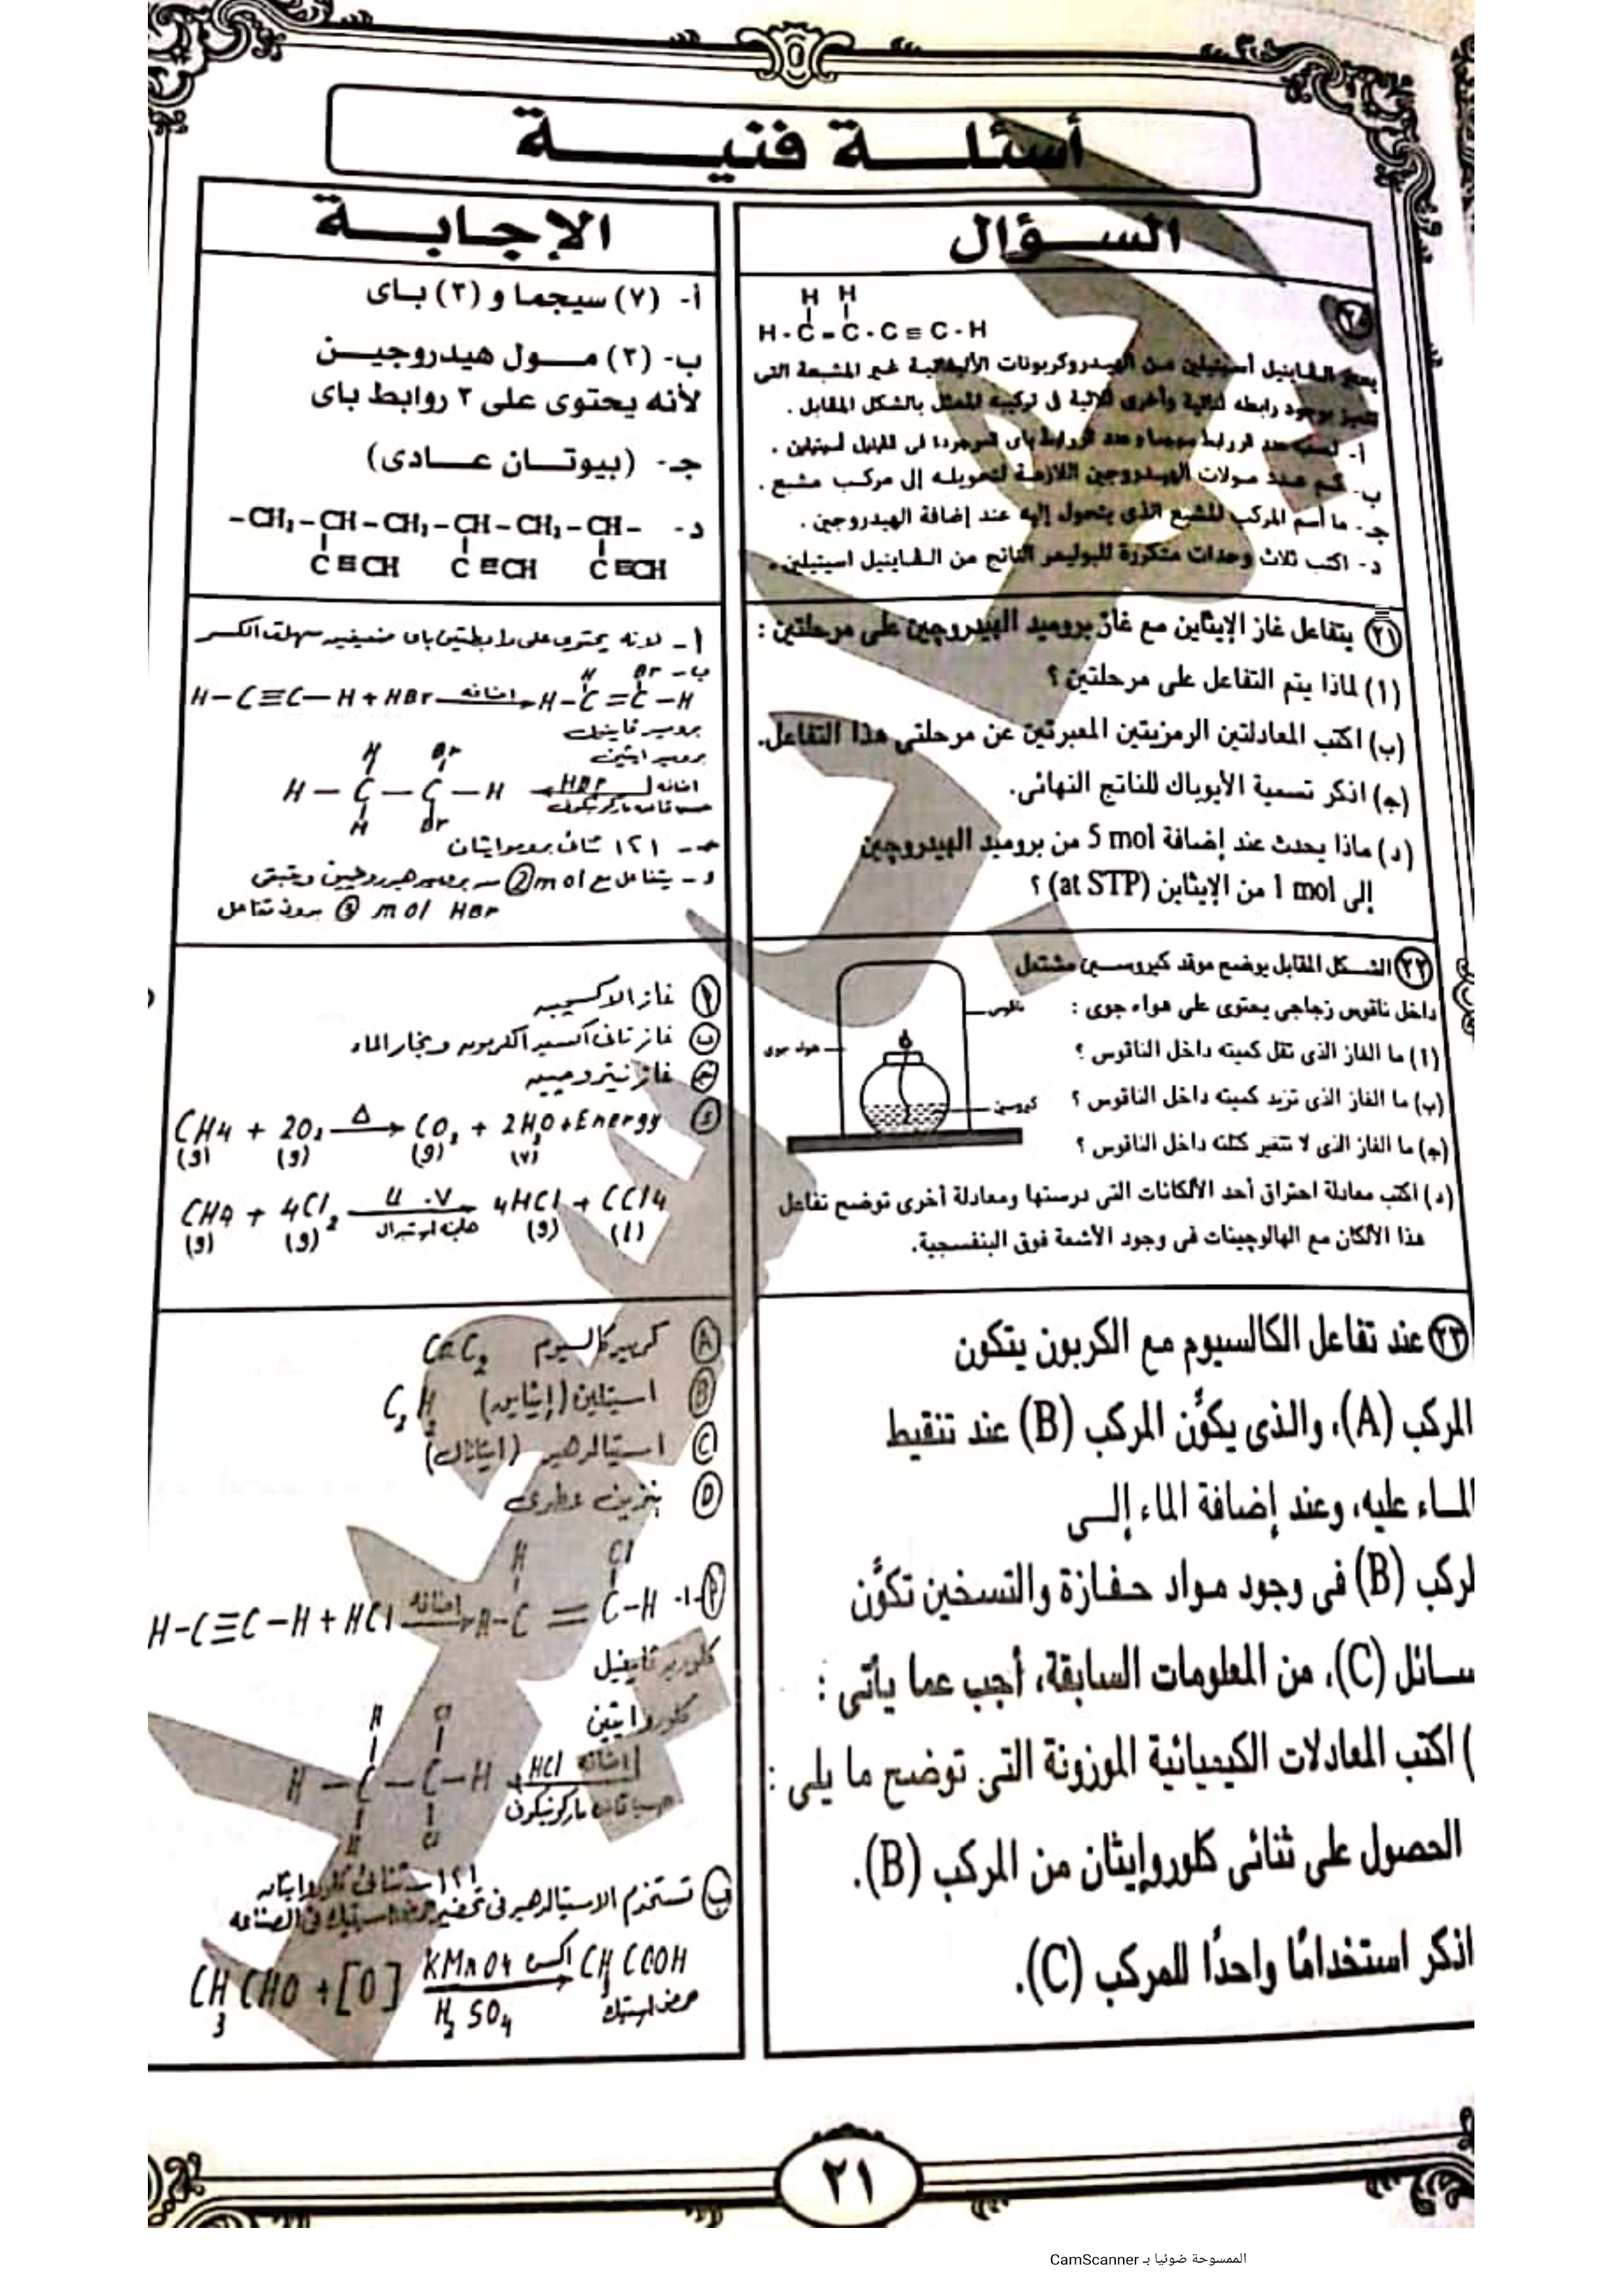 أسئلة فنية
السؤال
الإجابة
H H
H - C = C - C ≡ C - H
يعتبر الڤاينيل أسيتيلين من الهيدروكربونات الأليفاتية غير المشبعة التى
تتميز بوجود رابطه ثنائية وأخرى ثلاثية فى تركيبه الممثل بالشكل المقابل .
أ- احسب عدد الروابط سيجما وعدد الروابط باى الموجودة فى الڤاينيل أسيتيلين .
ب- كم عدد مولات الهيدروجين اللازمة لتحويله إلى مركب مشبع .
جـ- ما أسم المركب المشبع الذى يتحول إليه عند إضافة الهيدروجين .
د- اكتب ثلاث وحدات متكررة للبوليمر الناتج من الڤاينيل اسيتيلين .
أ- (٧) سيجما و (٣) باى
ب- (٣) مول هيدروجين
لأنه يحتوى على ٣ روابط باى
جـ- (بيوتان عادى)
د- -CH₂-CH-CH₂-CH-CH₂-CH-
C≡CH C≡CH C≡CH
٢١ يتفاعل غاز الإيثاين مع غاز بروميد الهيدروچين على مرحلتين :
(١) لماذا يتم التفاعل على مرحلتين ؟
(ب) اكتب المعادلتين الرمزيتين المعبرتين عن مرحلتى هذا التفاعل.
(ج) اذكر تسمية الأيوباك للناتج النهائى.
(د) ماذا يحدث عند إضافة 5 mol من بروميد الهيدروچين
إلى 1 mol من الإيثاين (at STP) ؟
أ- لانه يحتوى على رابطتين باى ضعيفين سهلة الكسر
ب- H Br
H-C≡C-H + HBr اضافه H-C=C-H
بروميد ڤاينيل
برومو ايثين
H Br
H-C-C-H HBr اضافه
حسب قاعده ماركونيكوف
H Br
جـ- ١،١ ثنائى بروموايثان
د- يتفاعل مع ② mol من بروميد هيدروجين ويتبقى
③ mol HBr بدون تفاعل
٢٢ الشكل المقابل يوضح موقد كيروسين مشتعل
داخل ناقوس زجاجى يحتوى على هواء جوى :
(١) ما الغاز الذى تقل كميته داخل الناقوس ؟
(ب) ما الغاز الذى تزيد كميته داخل الناقوس ؟
(ج) ما الغاز الذى لا تتغير كتلته داخل الناقوس ؟
(د) اكتب معادلة احتراق أحد الألكانات التى درستها ومعادلة أخرى توضح تفاعل
هذا الألكان مع الهالوچينات فى وجود الأشعة فوق البنفسجية.
ناقوس
هواء جوى
كيروسين
أ غاز الاكسجين
ب غاز ثانى اكسيد الكربون وبخار الماء
ج غاز نيتروجين
د CH4 + 2O₂ Δ CO₂ + 2H₂O + Energy
(g) (g) (g) (v)
CH4 + 4Cl₂ U.V 4HCl + CCl4
(g) (g) (g) (l)
٢٣ عند تفاعل الكالسيوم مع الكربون يتكون
المركب (A)، والذى يكوِّن المركب (B) عند تنقيط
الماء عليه، وعند إضافة الماء إلى
لركب (B) فى وجود مواد حفازة والتسخين تكوِّن
سائل (C)، من المعلومات السابقة، أجب عما يأتى :
) اكتب المعادلات الكيميائية الموزونة التى توضح ما يلى :
الحصول على ثنائى كلوروإيثان من المركب (B).
اذكر استخدامًا واحدًا للمركب (C).
A كربيد كالسيوم CaC₂
B استيلين (إيثاين) C₂H₂
C استيالدهيد (ايثانال)
D بنزين عطرى
H Cl
H-C≡C-H + HCl اضافه H-C=C-H
كلوريد ڤاينيل
كلورو ايثين
H Cl
H-C-C-H HCl اضافه
حسب قاعده ماركونيكوف
H Cl
١،١ - ثنائى كلورو ايثان
ب تستخدم الاستيالدهيد فى تحضير حمض استيك فى الصناعه
CH₃CHO + [O] KMnO4 اكسده CH₃COOH
H₂SO₄ حمض استيك
٢١
الممسوحة ضوئيا بـ CamScanner